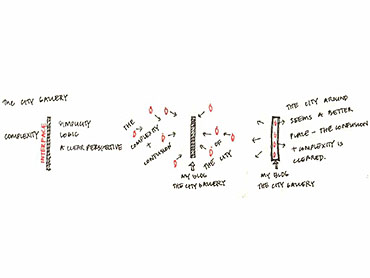 THE CITY GALLERY
COMPLEXITY
INTERFACE
SIMPLICITY
LOGIC
A CLEAR PERSPECTIVE
THE
COMPLEXITY
+
CONFUSION
OF
THE CITY
MY BLOG
THE CITY GALLERY
THE CITY AROUND
SEEMS A BETTER
PLACE - THE CONFUSION
+ COMPLEXITY IS
CLEARED.
MY BLOG
THE CITY GALLERY